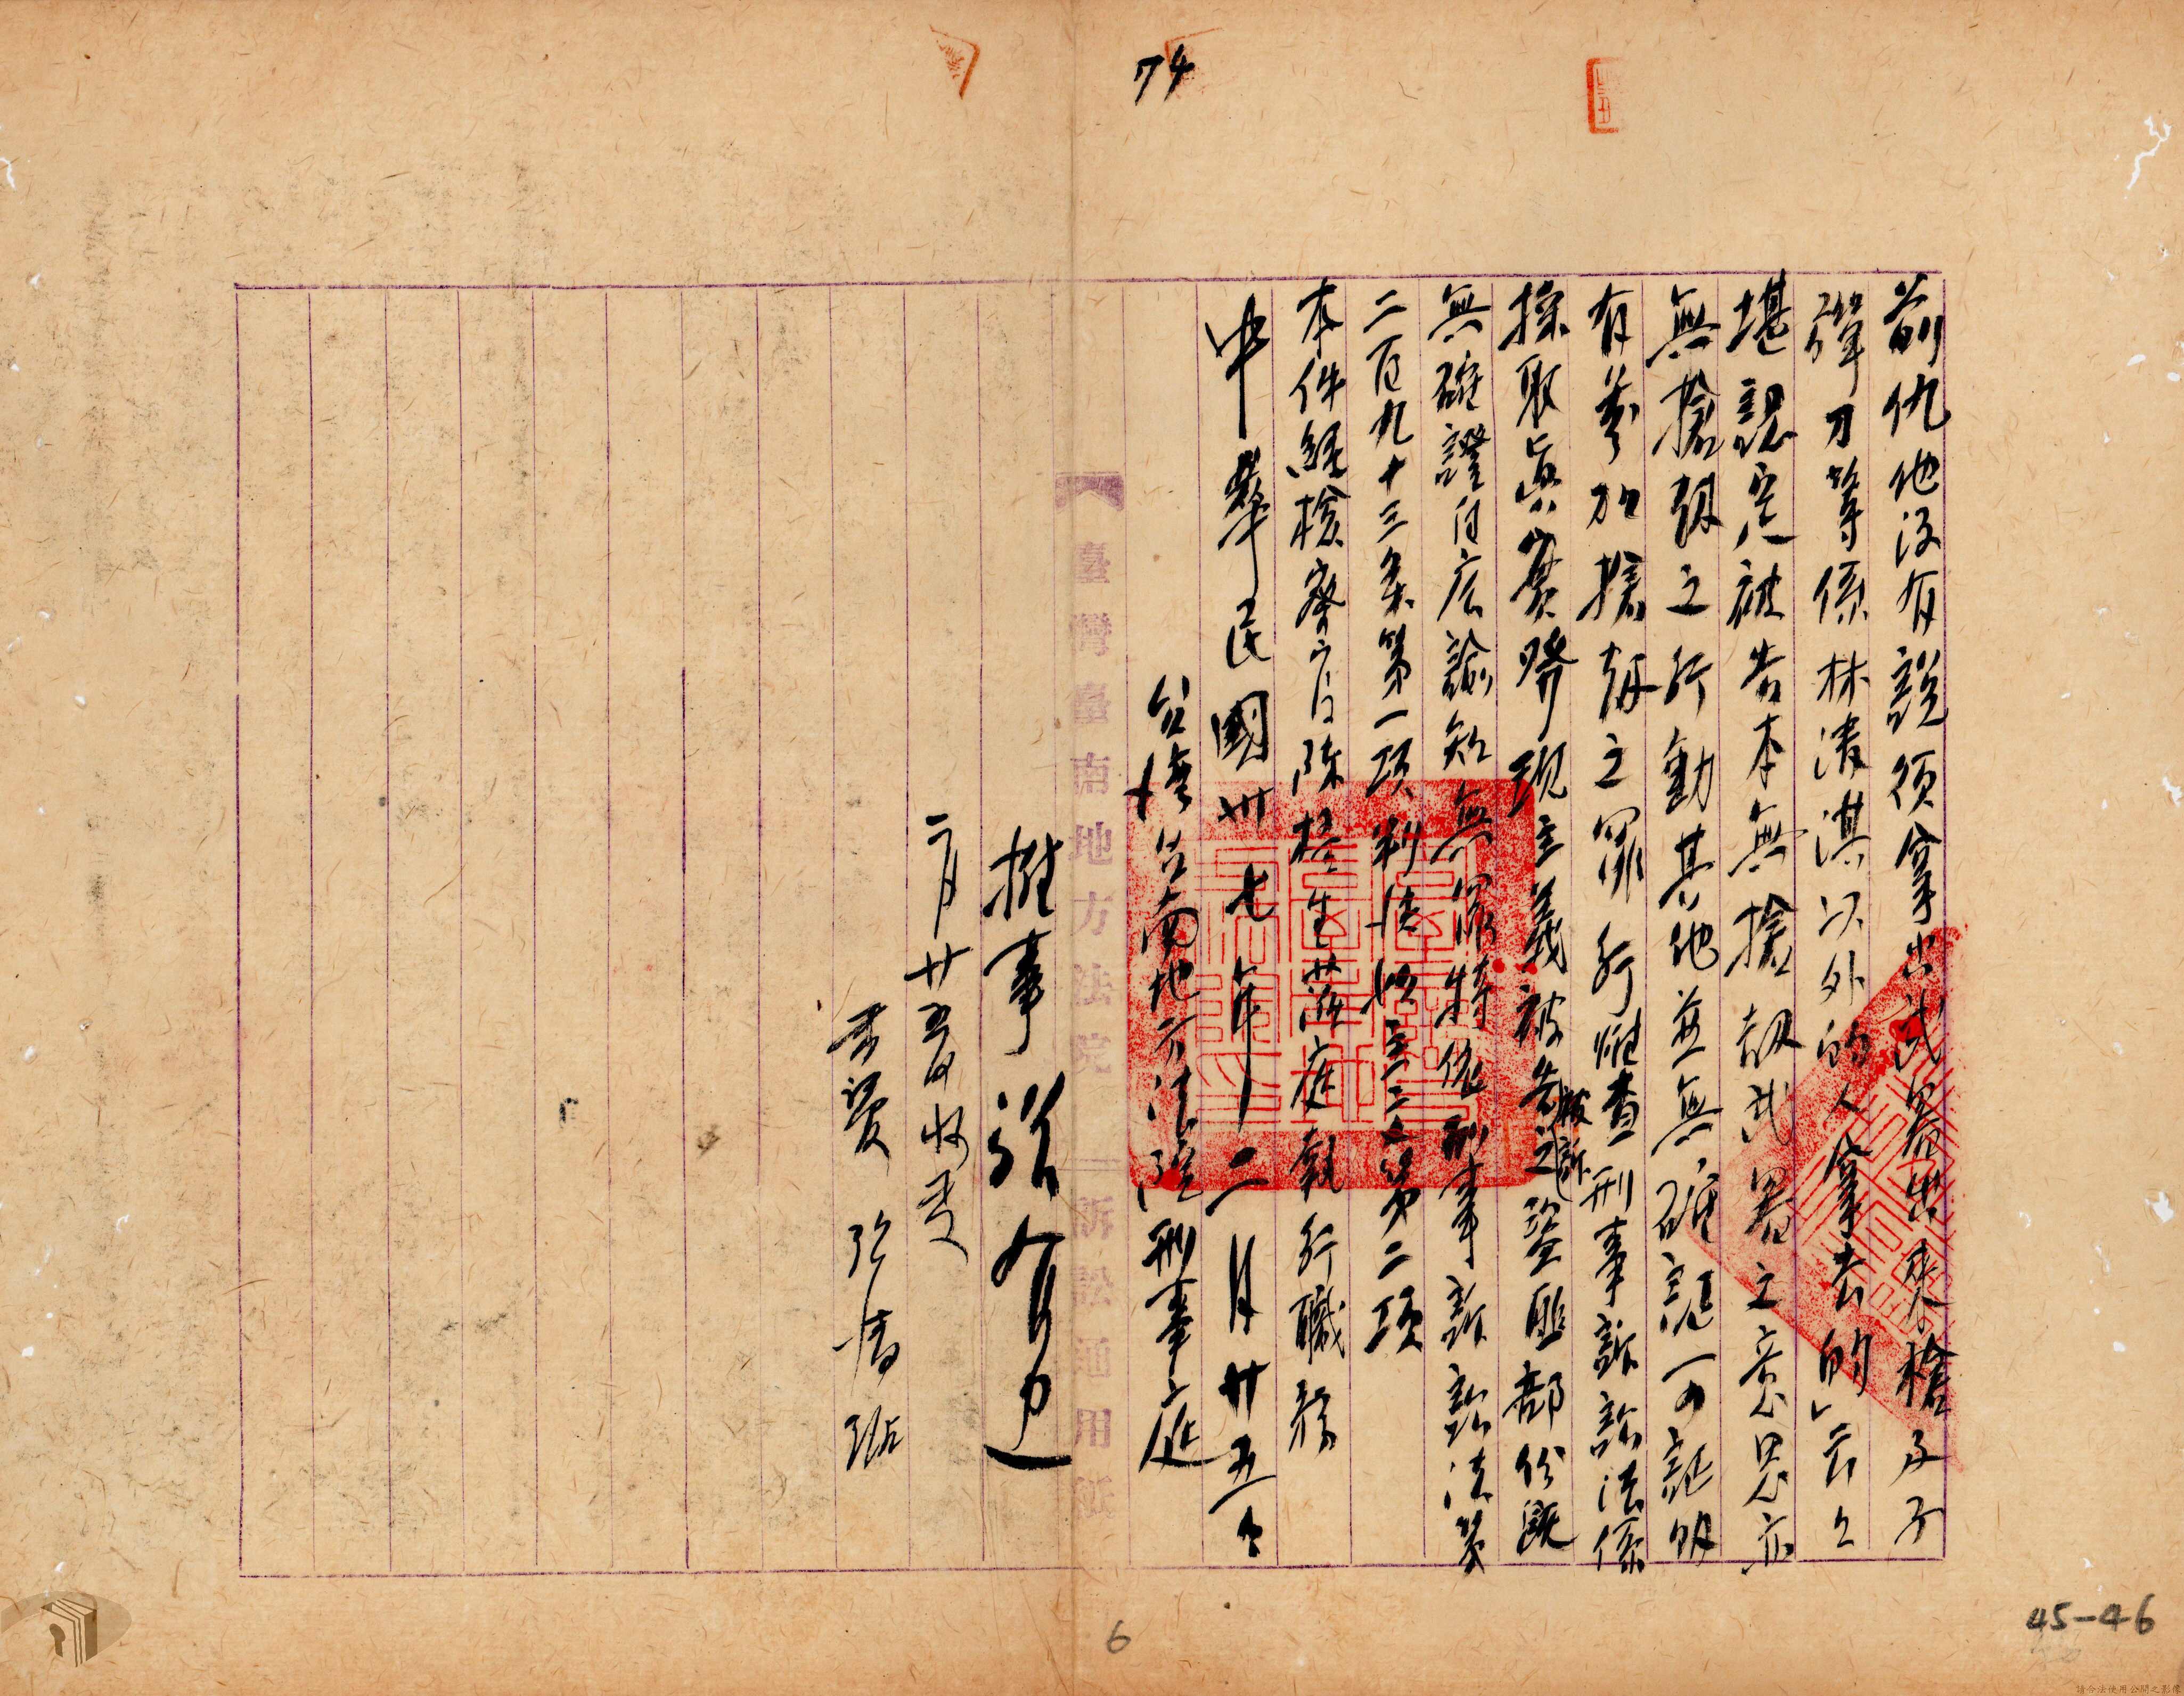 74
前仇他沒有說須拿出武器出來槍及子
彈刀等係林清淇以外的人拿去的」云云
堪認定被告本無搶刼武器之意思亦
無搶刼之行動其他並無確証可証明
有參加搶刼之罪行惟查刑事訴訟法係
採取真實發現主義被告被訴之盜匪部份既
無確證自应諭知無罪特依刑事訴訟法第
二百九十三条第一項判決如主文第二項
本件經檢察官陳樫生蒞庭執行職務
中華民國卅七年二月廿五日
台灣台南地方法院刑事庭
臺灣臺南地方法院 訴訟通用紙
推事
二月廿五日收受
6
45-46
請合法使用公開之影像